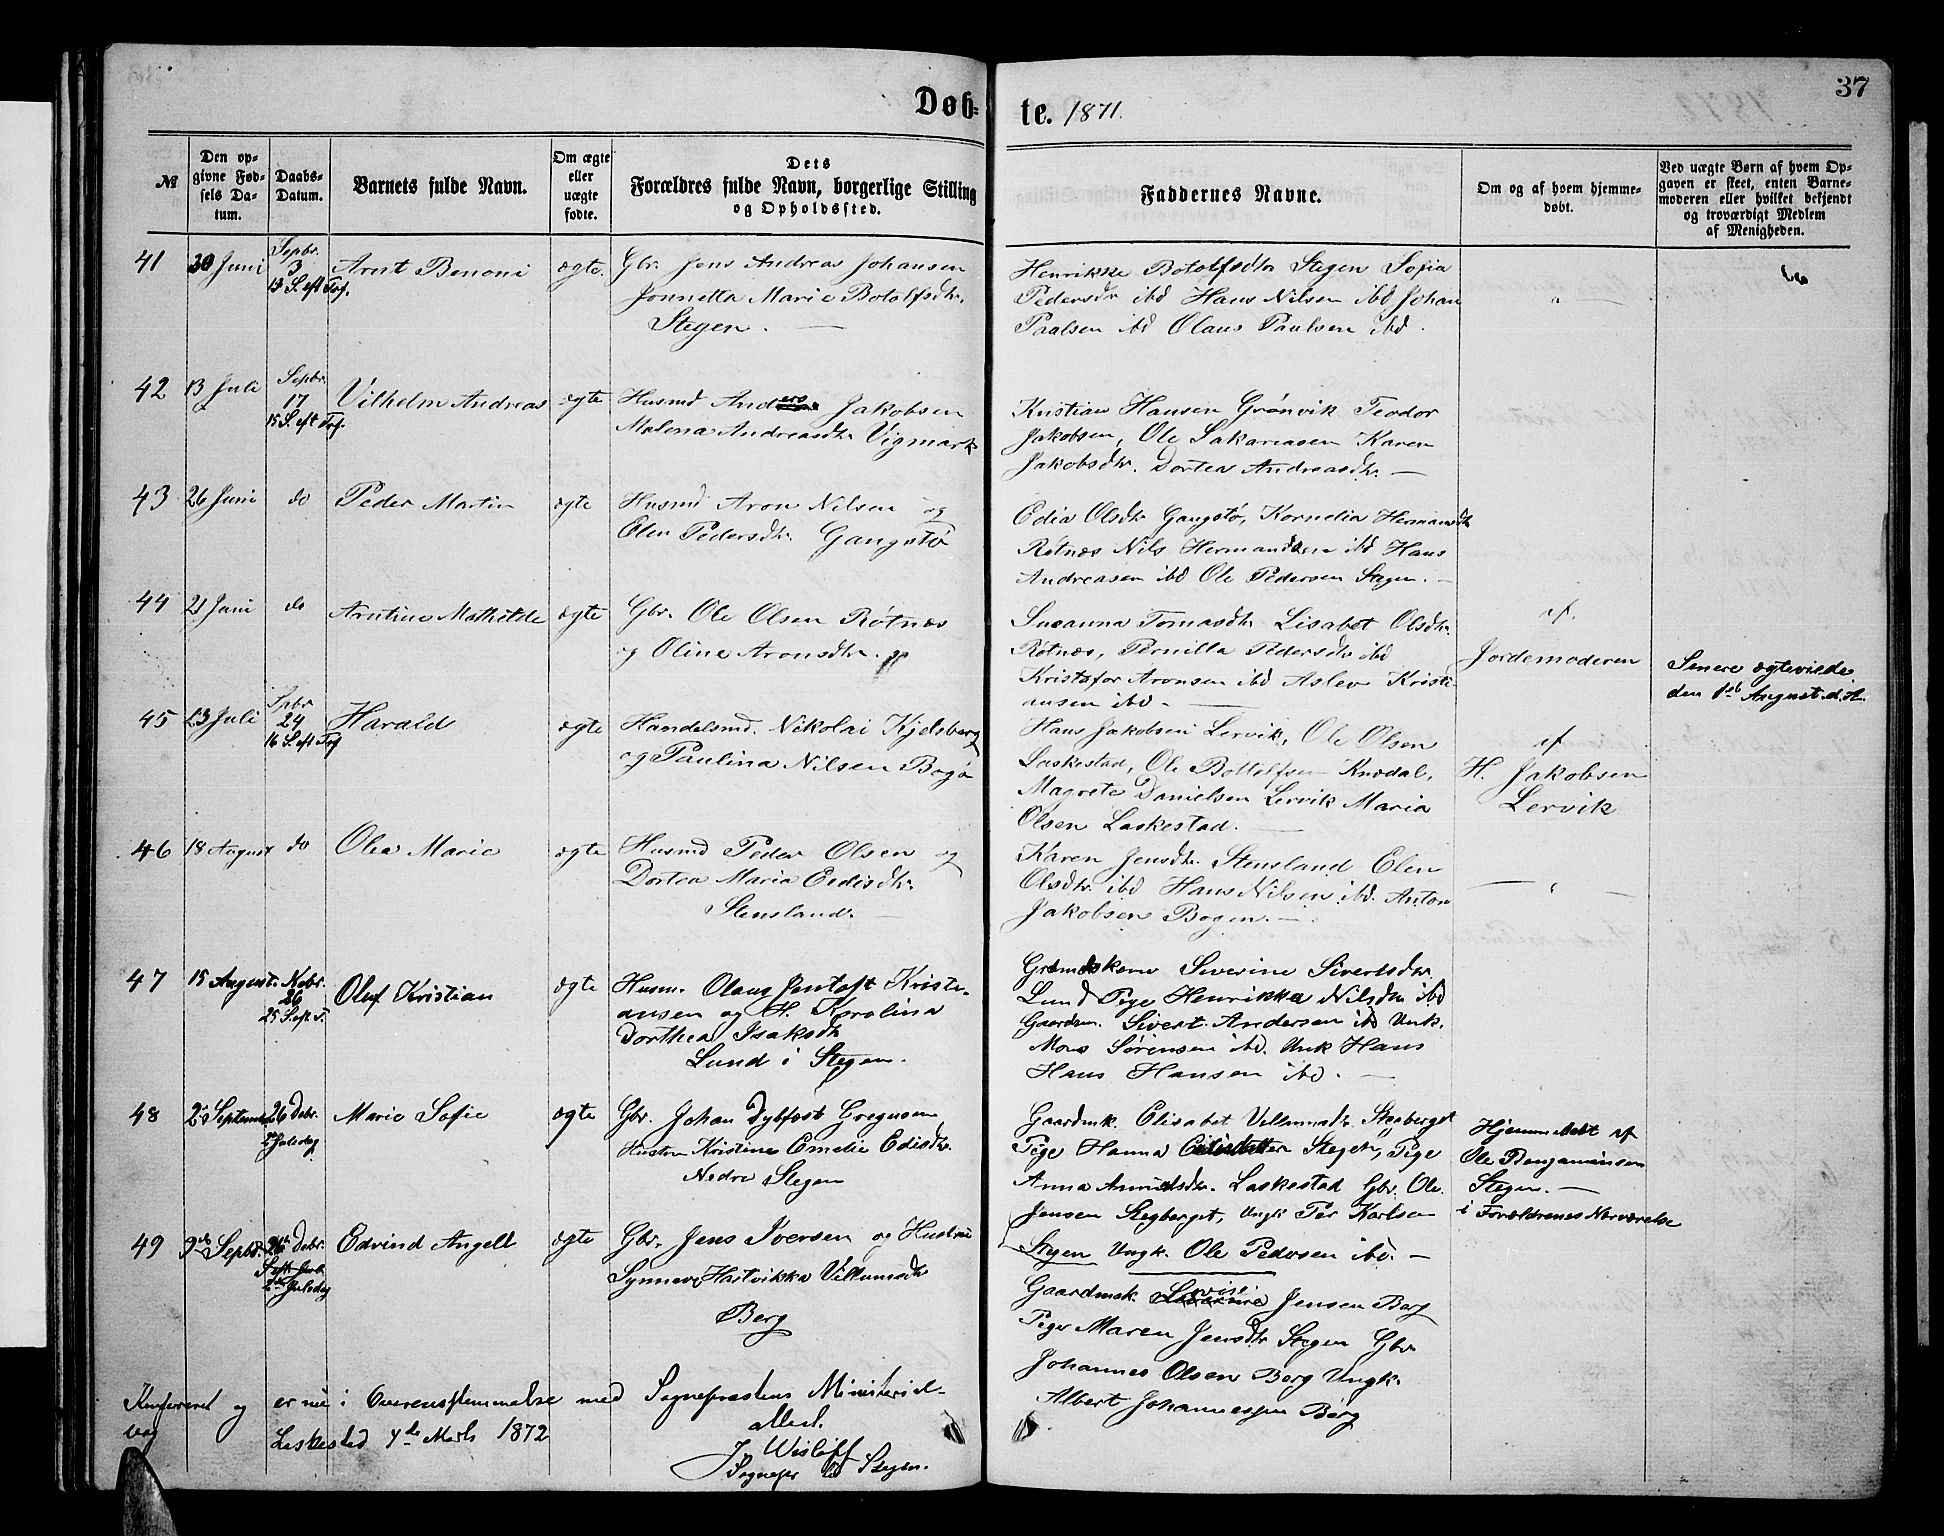 37
Døb-
te. 1871.
№
Den op-
givne Fød-
sels Da-
tum.
Daabs-
Datum.
Barnets fulde Navn.
Om ægte
eller
uægte
fødte.
Dets
Forældres fulde Navn, borgerlige Stilling
og Opholdssted.
Faddernes Navne.
Om og af hvem hjemme-
døbt.
Ved uægte Børn af hvem Op-
gaven er skeet, enten Barne-
moderen eller hvilket bekjendt
og troværdigt Medlem
af Menigheden.
41
30 Juni
Sepbr.
3
13 S. eft Tref.
Arnt Benoni
ægte.
Gbr. Jens Andreas Johansen
Jonnetta Marie Botolfsdtr.
Stegen. —
Henrikke Botolfsdtr Stegen Sofia
Pedersdr ibd Hans Nilsen ibd Johan
Paalsen ibd Olaus Paulsen ibd.
42
13 Juli
Sepbr.
17
15 S. eft Tref.
Vilhelm Andreas
ægte
Husmd Anders Jakobsen
Malena Andreasdtr Vigmark
Kristian Hansen Grønvik Teodor
Jakobsen, Ole Sakariasen Karen
Jakobsdtr. Dortea Andreasdtr. —
43
26 Juni
do
Peder Martin
ægte
Husmd Aron Nilsen og
Elen Pedersdtr. Gangstø
Edia Olsdtr Gangstø, Kornelia Hermansdtr
Røtnæs Nils Hermandsen ibd Hans
Andreasen ibd Ole Pedersen Stegen. —
44
21 Juni
do
Arntine Mathilde
ægte
Gbr. Ole Olsen Røtnæs
og Oline Aronsdtr.
Susanna Tomasdtr Lisabet Olsdtr.
Røtnæs, Pernilla Pedersdtr ibd
Kristofer Aronsen ibd Aslev Kristi-
ansen ibd. —
af.
Jordemoderen
Senere ægteviede
den 1ste August d. A.
45
23 Juli
Spbr
24
16 S. eft Tref
Harald
ægte
Handelsmd. Nikolai Kjelsberg
og Paulina Nilsen Bogø
Hans Jakobsen Lervik, Ole Olsen
Laskestad, Ole Bottolfsen Knædal,
Magrete Danielsen Lervik Maria
Olsen Laskestad. —
af
H. Jakobsen
Lervik
46
18 August
do
Olea Marie
ægte
Husmd Peder Olsen og
Dortea Maria Edisdtr.
Stensland. —
Karen Jensdtr. Stensland Elen
Olsdtr. ibd Hans Nilsen ibd. Anton
Jakobsen Bogen. —
47
15 August.
Nobr.
26
25 S. eft T.
Oluf Kristian
ægte
Husm. Olaus Jentoft Kristi-
ansen og H. Karolina
Dorthea Isaksdtr
Lund i Stegen.
Severine Sivertsdtr.
Lund Pige Henrikka Nilsdtr ibd
Gaardm. Sivert Andersen ibd Unk.
Mons Sørensen ibd. Unk Hans
Hans Hansen ibd. —
48
September
26 Debr.
2den Juledag
Marie Sofie
ægte
Gbr. Johan Dybfest Gregusen
Hustru Kristine Emelie Edisdtr.
Nedre Stegen
Gaardmk. Elisabet Villumsdtr. Stegberget
Pige Hanna Edisdatter Stegen, Pige
Anna Laskestad Gbr. Ole
Jensen Stegberget, Ungk Per Karlsen
Stegen Ungk. Ole Pedersen ibd. —
Hjemmedøbt af
Ole Benjaminsen
Stegen. —
i Forældrenes Nærværelse
49
9de Sepbr.
26 Debr.
2den Juledag
Edvind Angell
ægte
Gbr. Jens Iversen og Hustrue
Synneve Hartvikka Villumsdtr
Berg
Gaardmsk. Lovise Jensen Berg
Pige Maren Jensdtr Stegen Gbr
Johannes Olsen Berg Ungk.
Albert Johannessen Berg
Konfereret og er nu i Overensstemmelse med Sognepræstens Ministerial-
bog
attest.
Laskestad 4de Marts 1872
J Wisløff
Sognepr til Stegen.